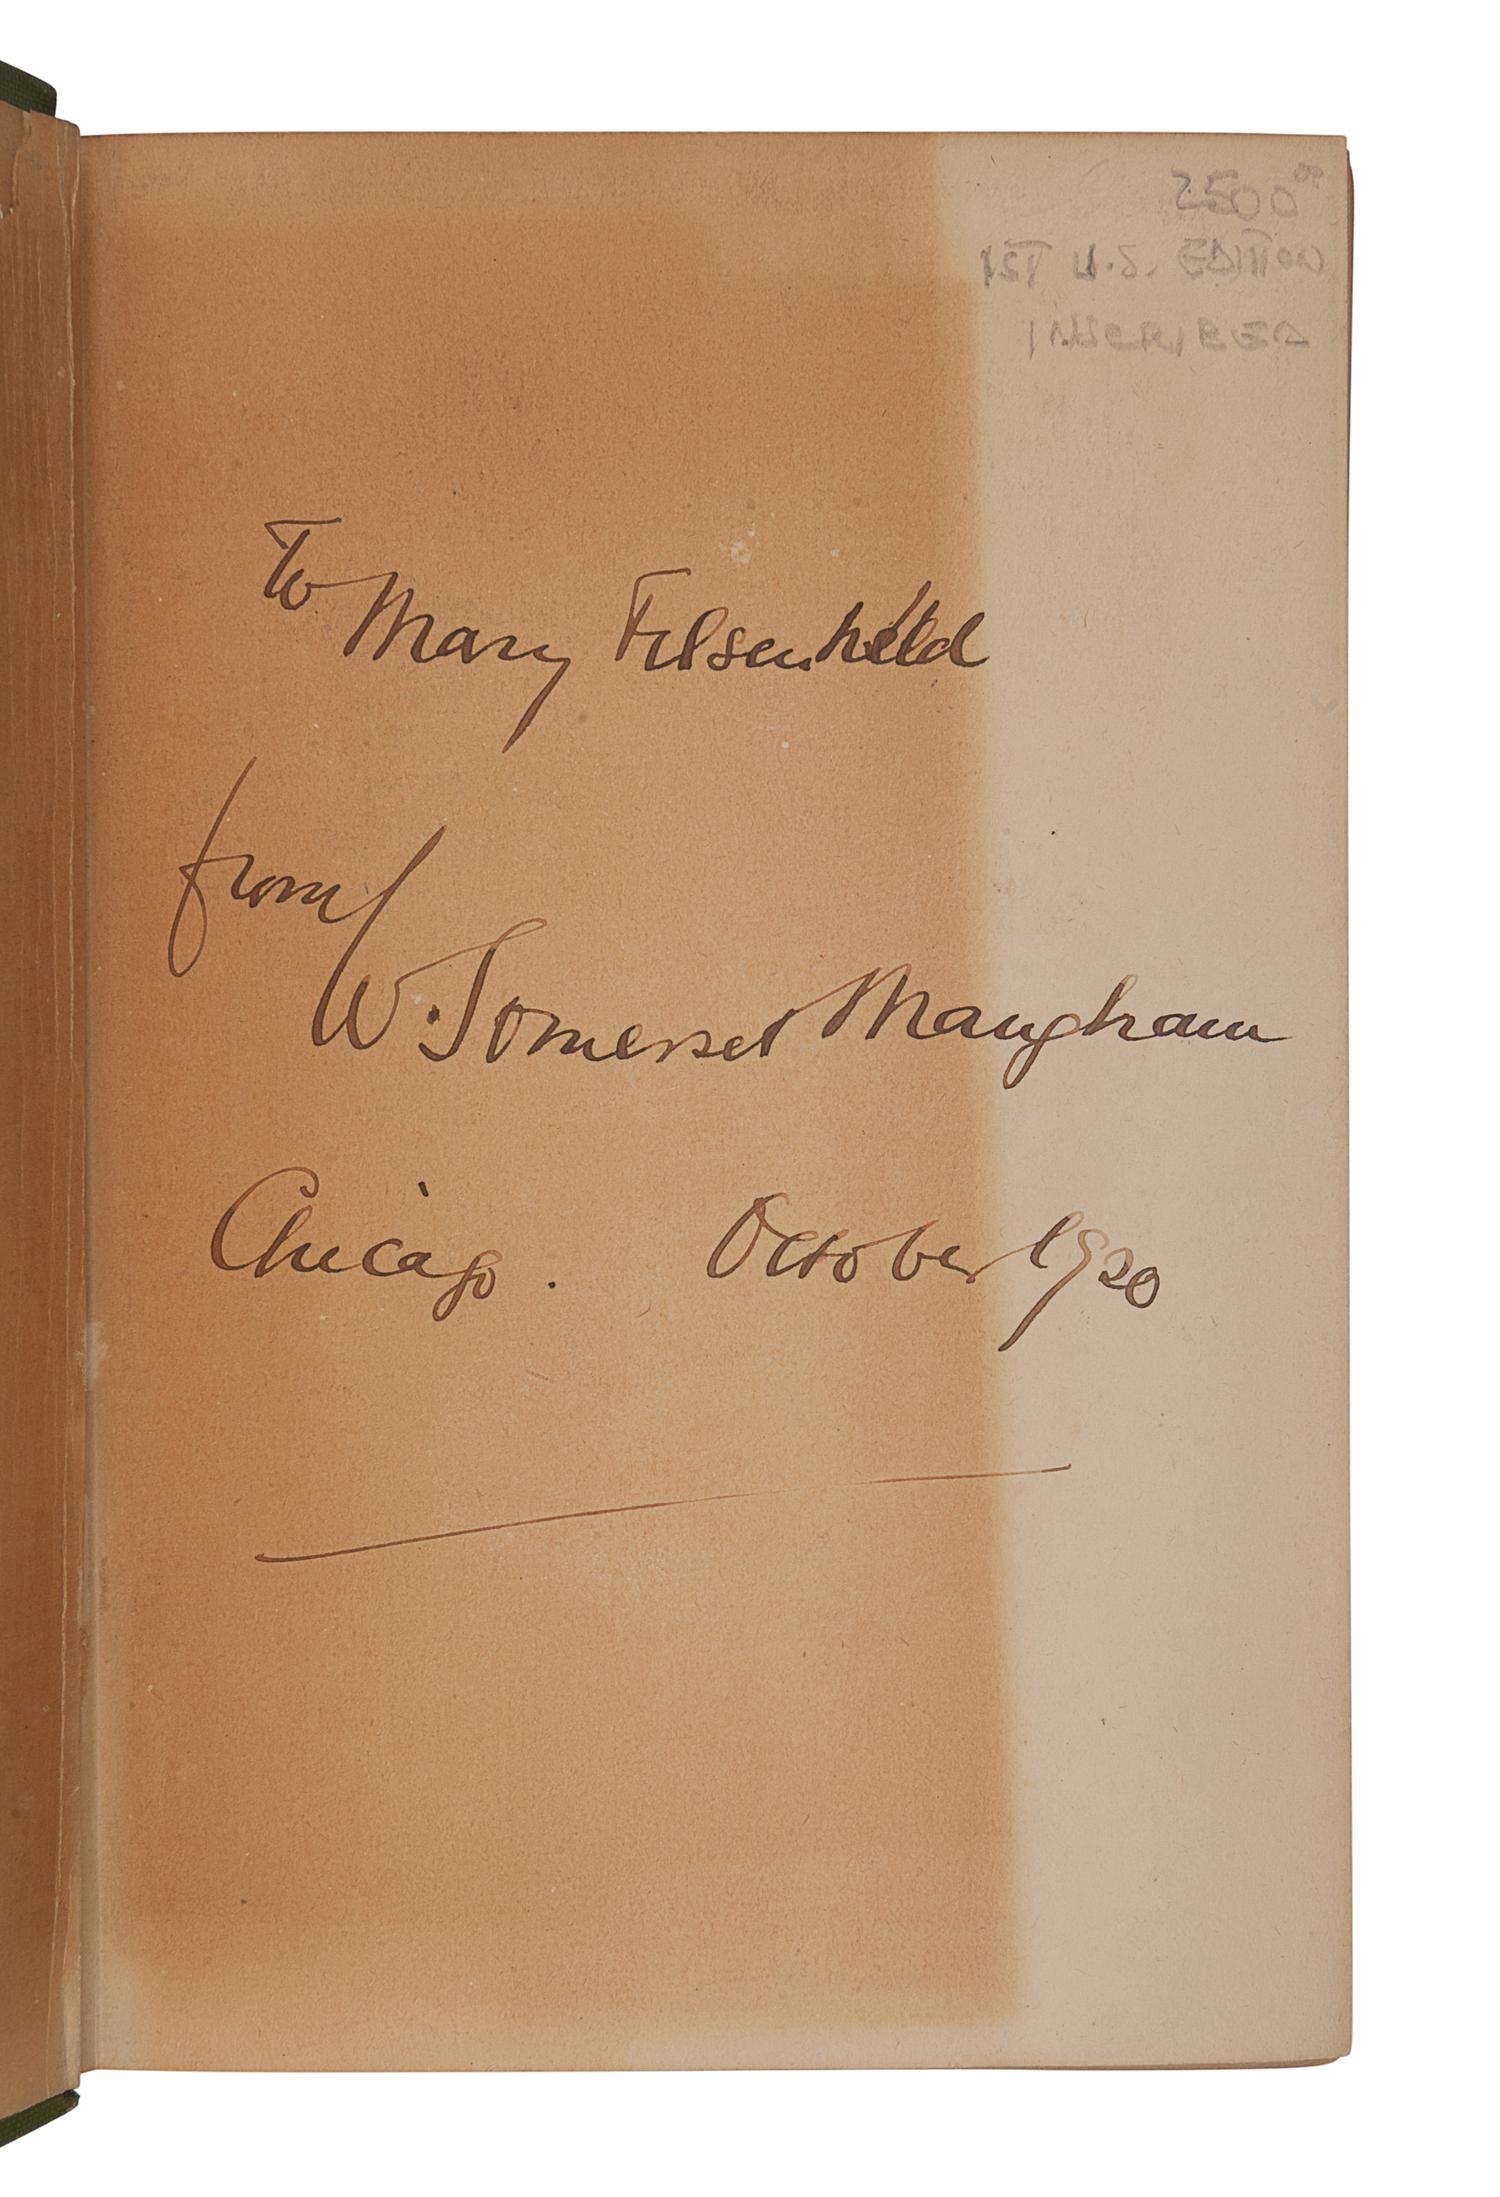 2500⁰⁰
1ST U.S. EDITION
INSCRIBED
To
Mary Felsenheld
from
W. Somerset Maugham
Chicago. October 1920